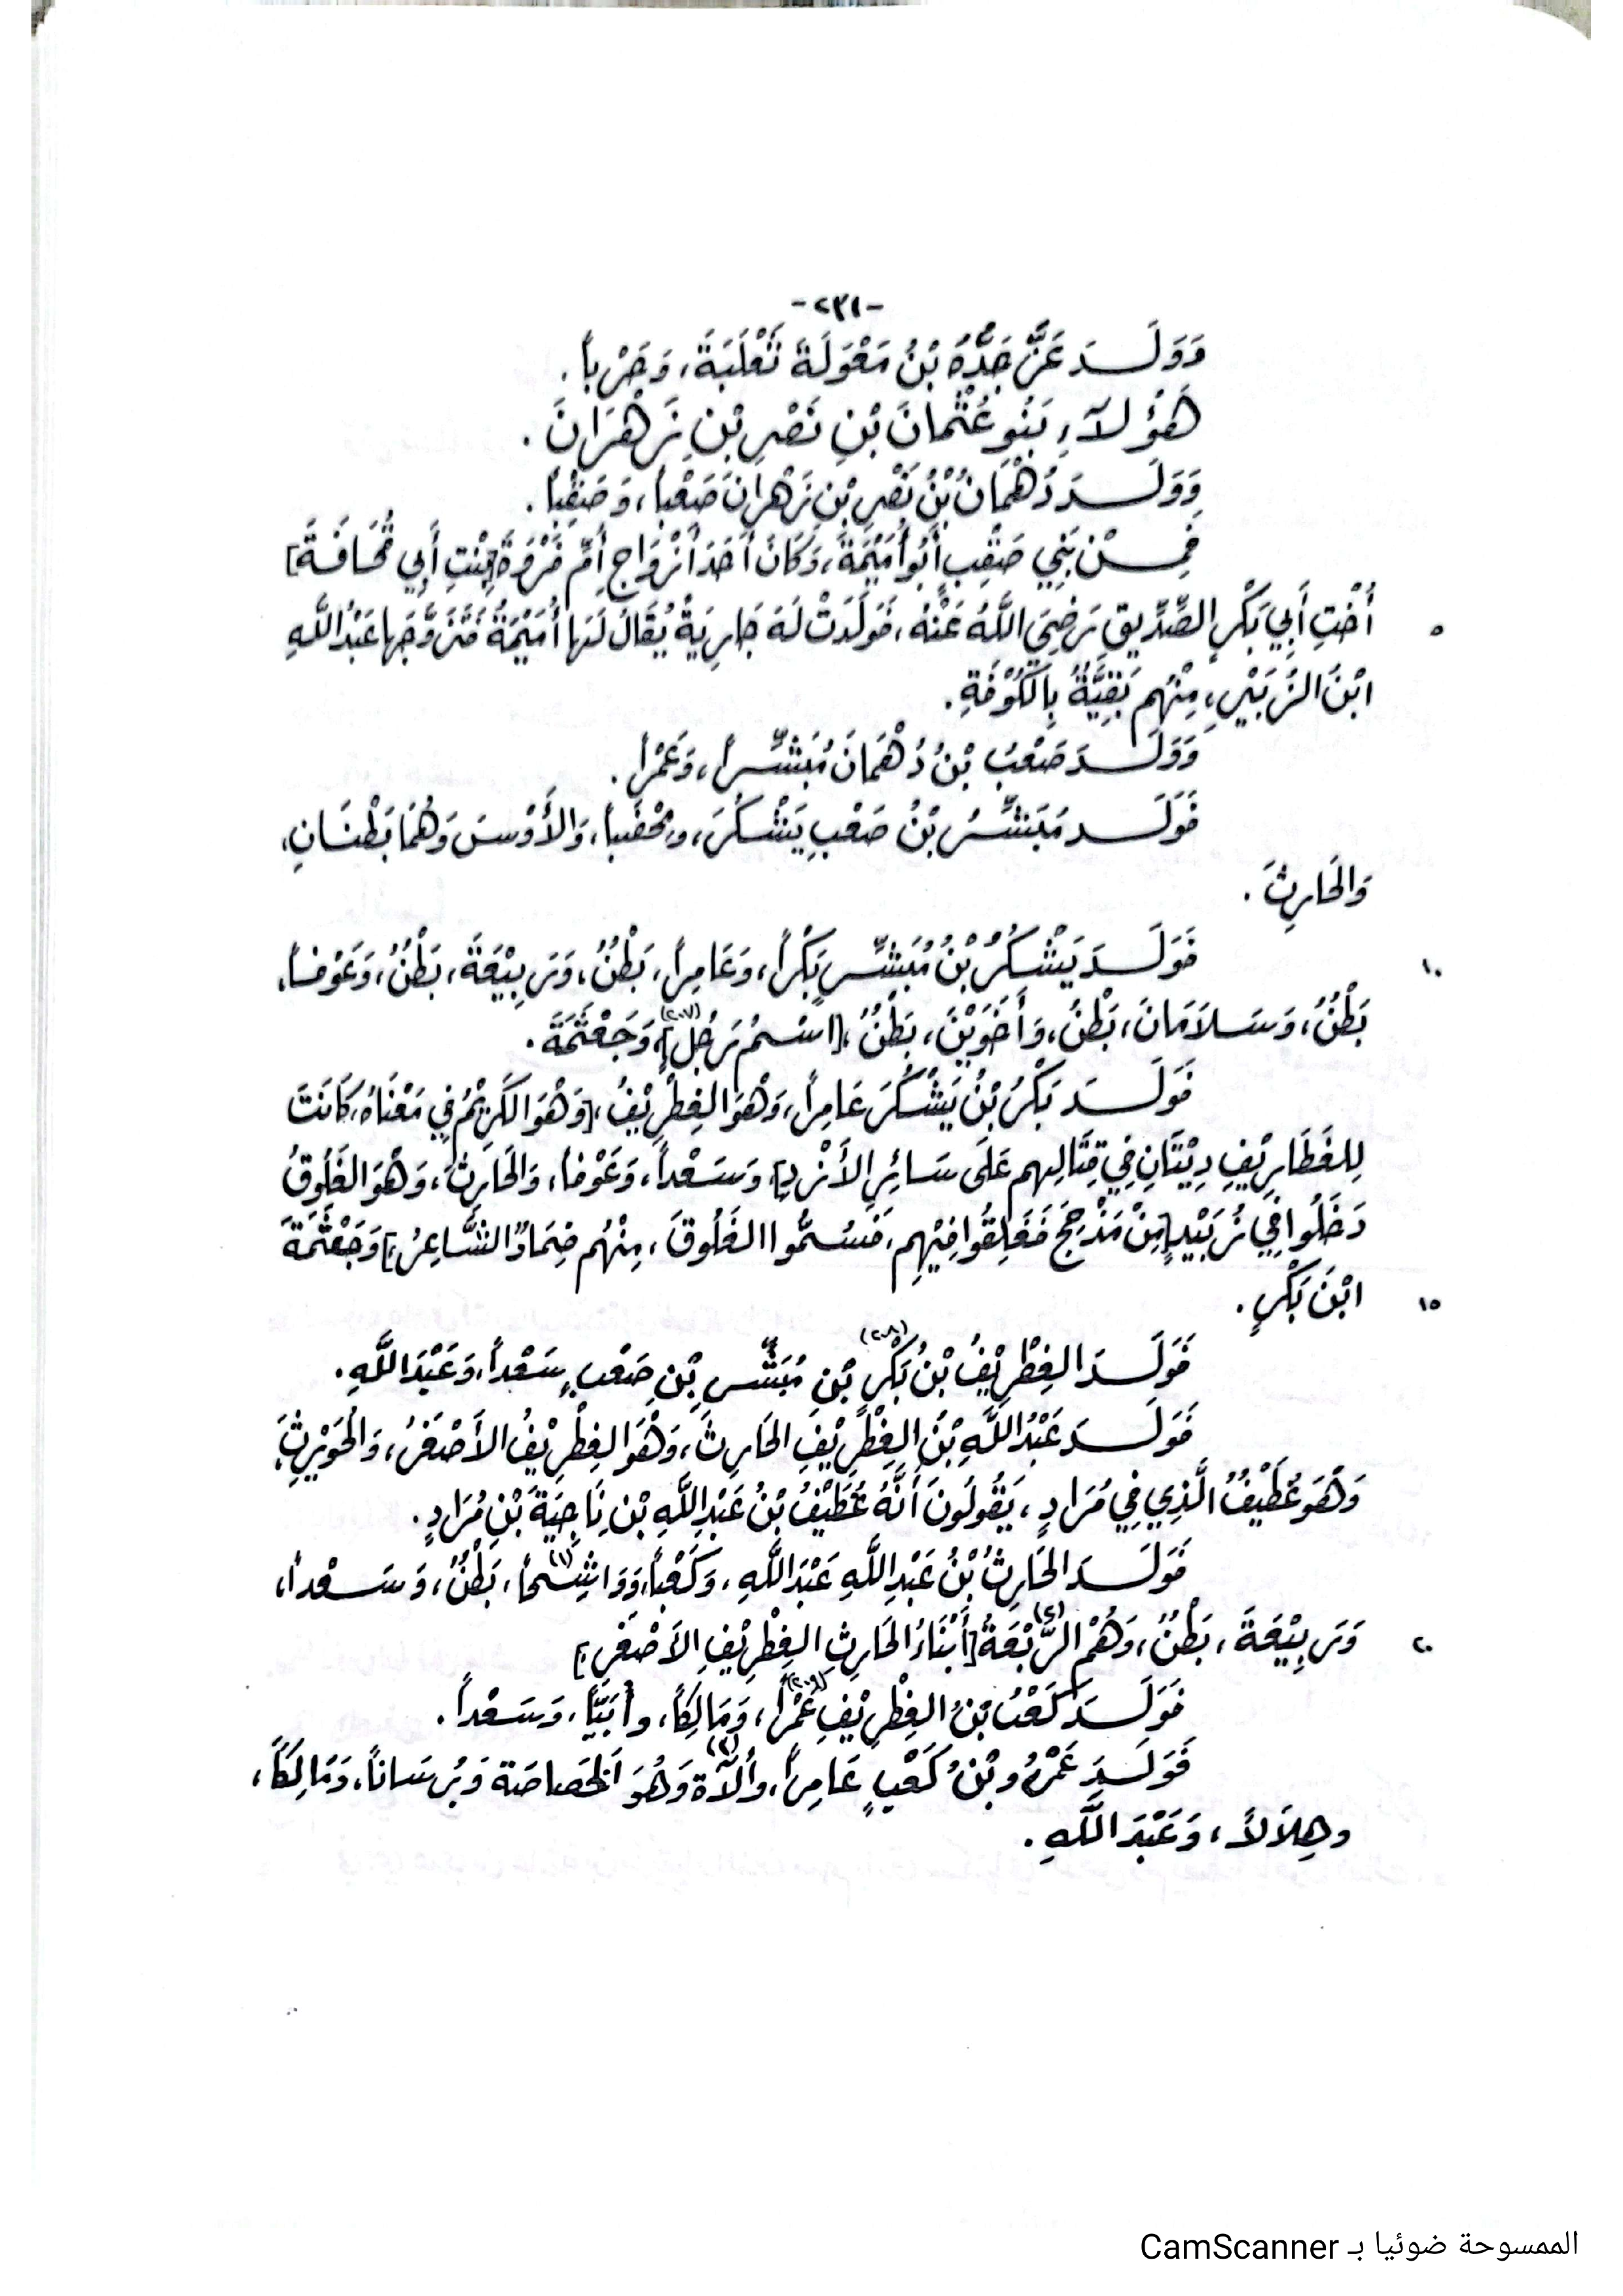 -٢٣١-
وَوَلَـــدَ عَزُّ جَدُّهُ بْنُ مَعْوَلَةَ ثَعْلَبَةَ، وَحَرْباً.
هَؤُلَاءِ بَنُو عُثْمَانَ بْنِ نَصْرِ بْنِ زَهْرَانَ.
وَوَلَـــدَ دُهْمَانُ بْنُ نَصْرِ بْنِ زَهْرَانَ صَعْباً، وَصَقِباً.
فَمِـــنْ بَنِي صَقِبٍ أَبُو أُمَيْمَةَ، وَكَانَ أَحَدَ أَزْوَاجِ أُمِّ فَرْوَةَ [بِنْتِ أَبِي قُحَافَةَ]
٥ أُخْتِ أَبِي بَكْرٍ الصِّدِّيقِ رَضِيَ اللَّهُ عَنْهُ، فَوَلَدَتْ لَهُ جَارِيَةً يُقَالُ لَهَا أُمَيْمَةُ فَتَزَوَّجَهَا عَبْدُ اللَّهِ
ابْنُ الزُّبَيْرِ، مِنْهُم بَقِيَّةٌ بِالكُوْفَةِ.
وَوَلَـــدَ صَعْبُ بْنُ دُهْمَانَ مُبَشِّـــراً، وَعَمْراً.
فَوَلَـــدَ مُبَشِّـــرُ بْنُ صَعْبٍ يَشْكُرَ، وَمُحْضَباً، وَالأَوْسَ وَهُمَا بَطْنَانِ،
وَالحَارِثَ.
١٠ فَوَلَـــدَ يَشْكُرُ بْنُ مُبَشِّـــرٍ بَكْراً، وَعَامِراً، بَطْنٌ، وَرَبِيْعَةَ، بَطْنٌ، وَعَوْفاً،
بَطْنٌ، وَسَلَامَانَ، بَطْنٌ، وَأَخَوَيْنَ، بَطْنٌ، [اسْـمُ رَجُلٍ] (٢٠٧)، وَجَعْثَمَةَ.
فَوَلَـــدَ بَكْرُ بْنُ يَشْكُرَ عَامِراً، وَهْوَ الغِطْرِيْفُ، [وَهْوَ الكَرِيْمُ فِي مَعْنَاهُ، كَانَتْ
لِلغَطَارِيْفِ دِيْتَانِ فِي قِتَالِهِم عَلَى سَائِرِ الأَزْدِ]، وَسَعْداً، وَعَوْفاً، وَالحَارِثَ، وَهْوَ الغَلُوقُ
دَخَلُوا فِي زُبَيْدٍ [مِنْ مَذْحِجَ فَغَلِقُوا فِيْهِم، فَسُمُّوا الغَلُوقَ، مِنْهُم ضِمَادٌ الشَّاعِرُ،] وَجَعْثَمَةَ
١٥ ابْنَ بَكْرٍ.
فَوَلَـــدَ الغِطْرِيْفُ بْنُ بَكْرِ (٢٠٨) بْنِ مُبَشِّـــرِ بْنِ صَعْبٍ سَعْداً، وَعَبْدَ اللَّهِ.
فَوَلَـــدَ عَبْدُ اللَّهِ بْنُ الغِطْرِيْفِ الحَارِثَ، وَهْوَ الغِطْرِيْفُ الأَصْغَرُ، وَالحُوَيْرِثَ،
وَهْوَ غُطَيْفٌ الَّذِي فِي مُرَادٍ، يَقُولُونَ أَنَّهُ غُطَيْفُ بْنُ عَبْدِ اللَّهِ بْنِ نَاجِيَةَ بْنِ مُرَادٍ.
فَوَلَـــدَ الحَارِثُ بْنُ عَبْدِ اللَّهِ عَبْدَ اللَّهِ، وَكَعْباً، وَوَاشِـحاً (١)، بَطْنٌ، وَسَـعْداً،
٢٠ وَرَبِيْعَةَ، بَطْنٌ، وَهُمْ الرَّبْعَةُ (٢) [أَبْنَاءُ الحَارِثِ الغِطْرِيْفِ الأَصْغَرِ.]
فَوَلَـــدَ كَعْبُ بْنُ الغِطْرِيْفِ عَمْراً (٢٠٩)، وَمَالِكاً، وأُبَيَّا، وَسَعْداً.
فَوَلَـــدَ عَمْرُو بْنُ كَعْبٍ عَامِراً، وأَلآَةَ (٣) وَهُوَ الخَصاصَة وَبُرسَاناً، وَمَالِكاً،
وهِلَالاً، وَعَبْدَ اللَّهِ.
الممسوحة ضوئيا بـ CamScanner